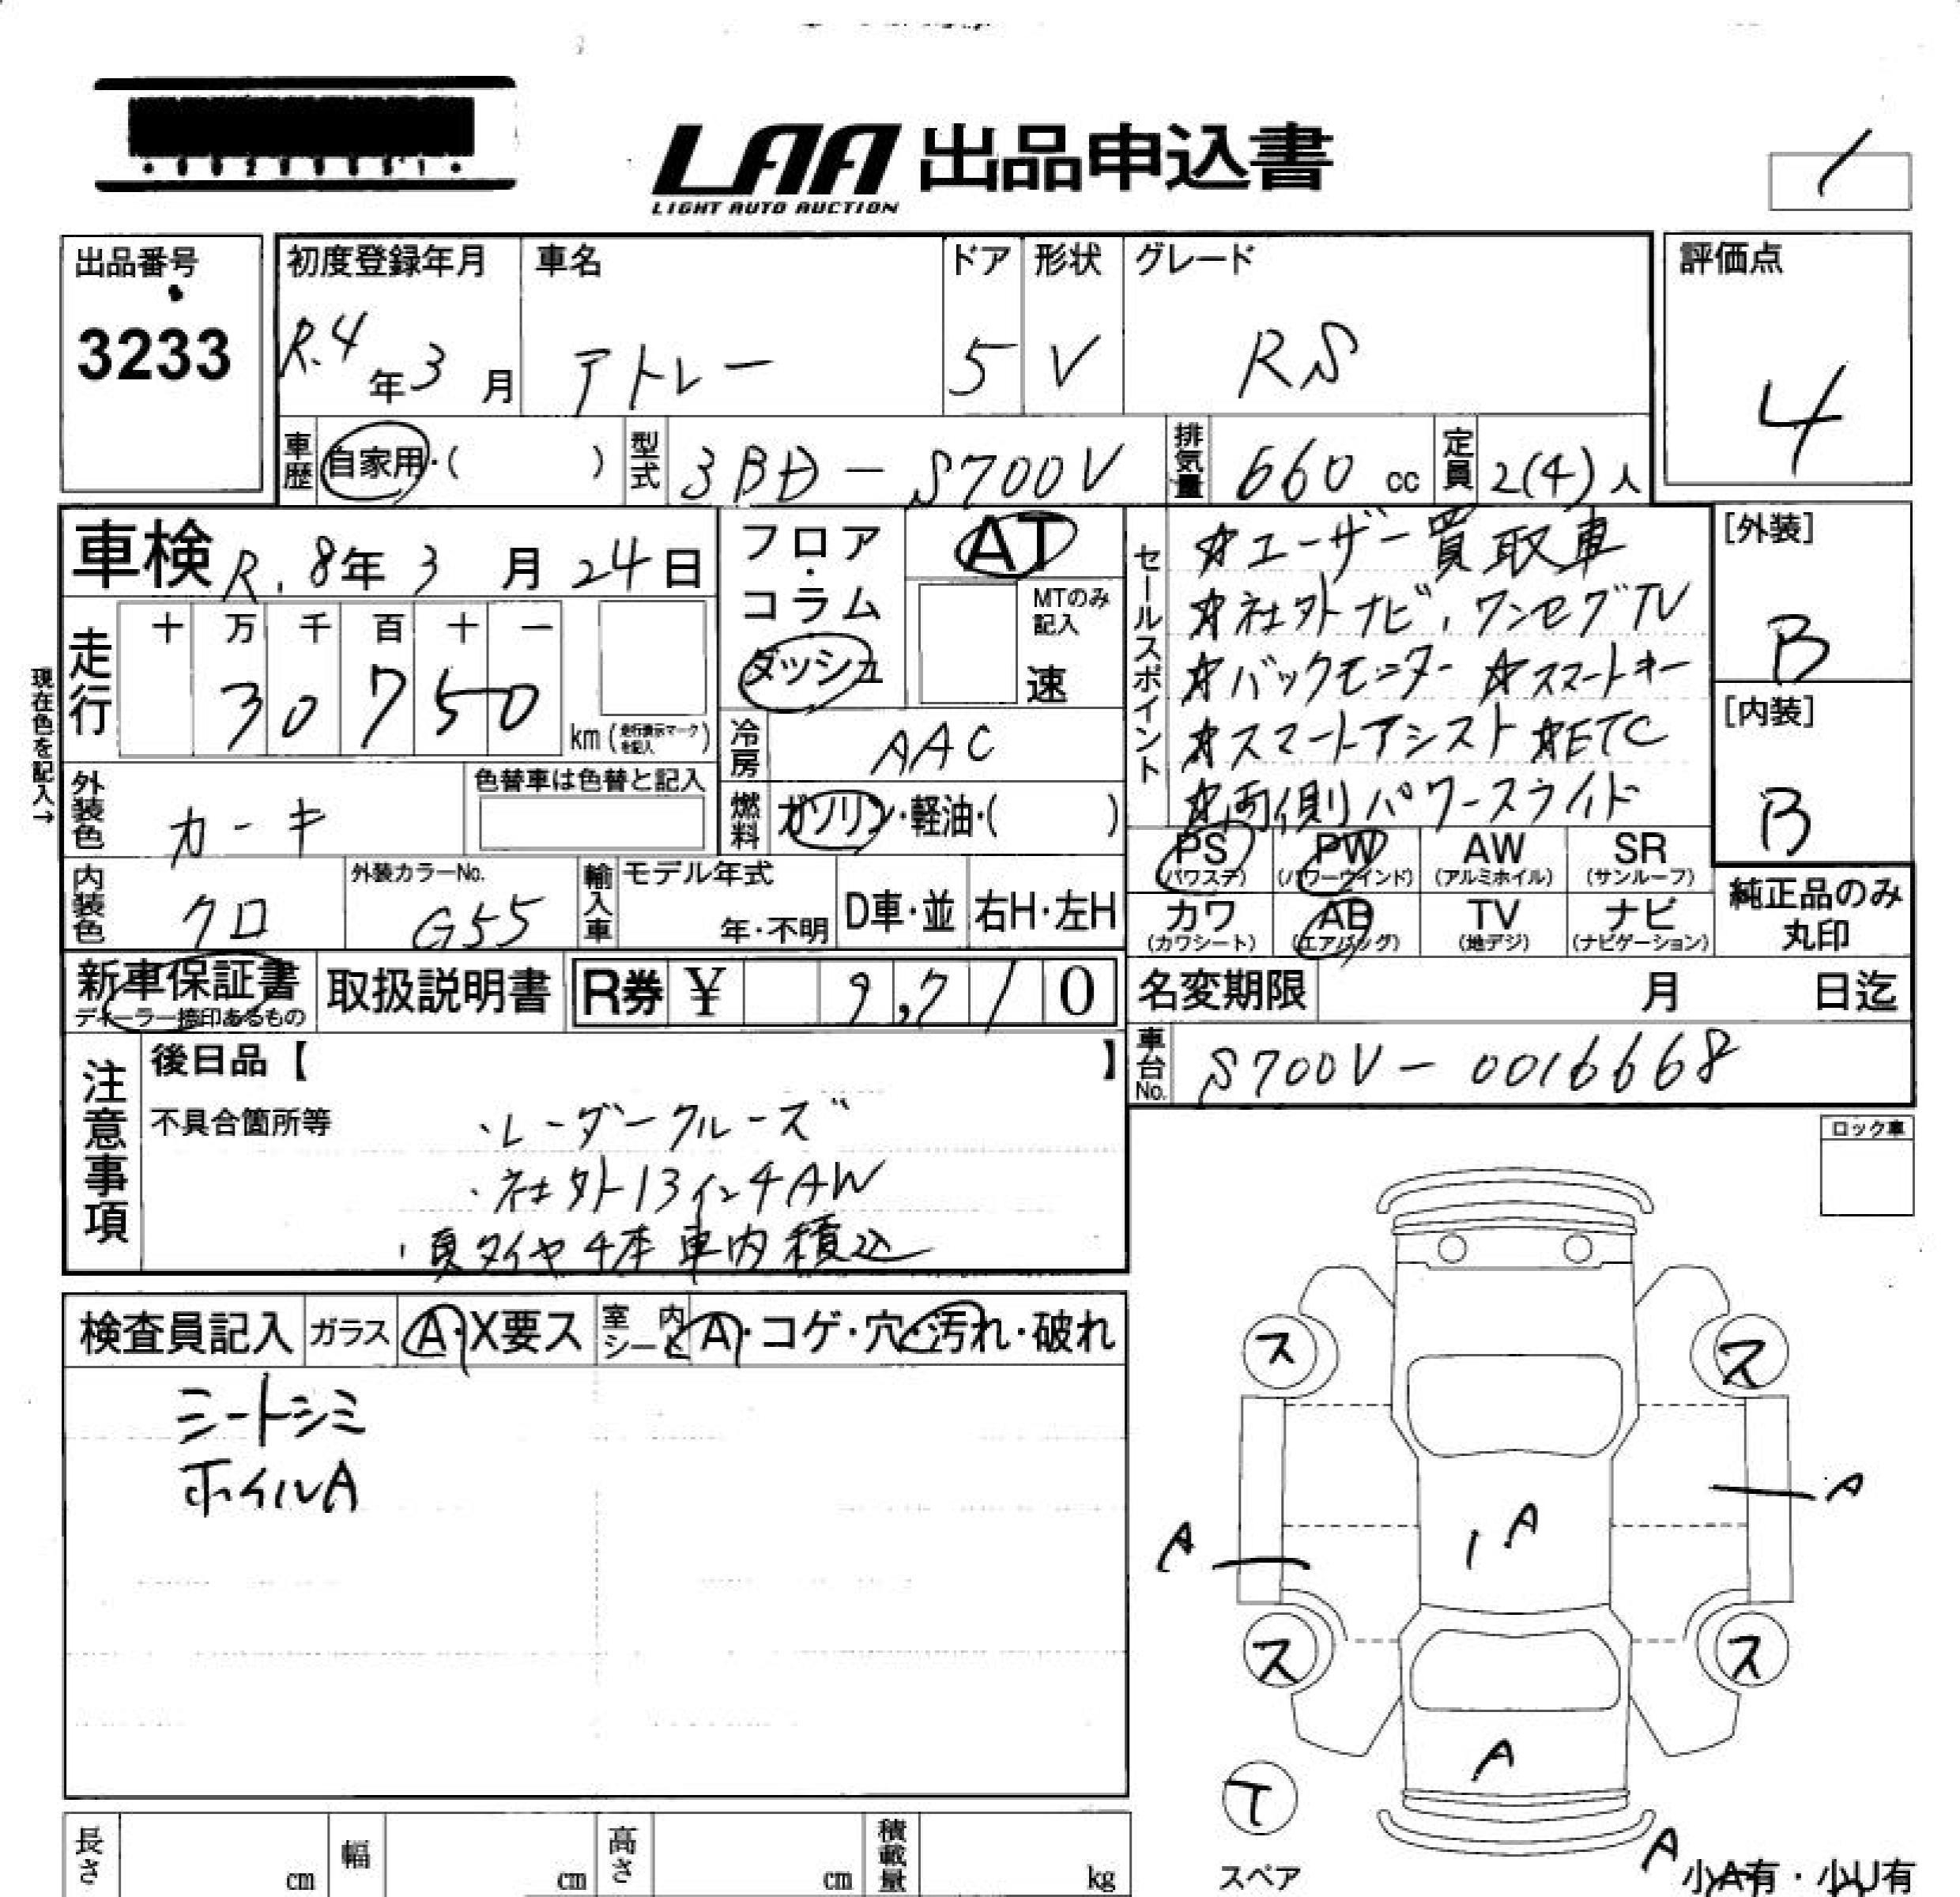 LAA 出品申込書
LIGHT AUTO AUCTION
出品番号
3233
初度登録年月
R.4年3月
車名
アトレー
ドア
5
形状
V
グレード
RS
評価点
4
車歴 自家用・( )
型式 3BD-S700V
排気量 660 cc
定員 2(4)人
車検 R.8年3月24日
現在色を記入→
走行
十 万 千 百 十 一
3 0 7 5 0
km(走行表示マークを記入)
フロア・コラム
ダッシュ
AT
MTのみ記入
速
冷房 AAC
燃料 ガソリン・軽油・( )
セールスポイント
☆ユーザー買取車
☆社外ナビ,ワンセグTV
☆バックモニター ☆スマートキー
☆スマートアシスト ☆ETC
☆両側パワースライド
[外装]
B
[内装]
B
外装色 カーキ
色替車は色替と記入
内装色 クロ
外装カラーNo.
G55
輸入車 モデル年式
年・不明
D車・並 右H・左H
PS (パワステ)
PW (パワーウインド)
AW (アルミホイル)
SR (サンルーフ)
カワ (カワシート)
AB (エアバッグ)
TV (地デジ)
ナビ (ナビゲーション)
純正品のみ
丸印
新車保証書
ディーラー捺印あるもの
取扱説明書
R券 ¥ 9,710
名変期限 月 日迄
車台No. S700V-0016668
注意事項
後日品【 】
不具合箇所等
・レーダークルーズ
・社外13インチAW
・夏タイヤ4本車内積込
ロック車
検査員記入 ガラス A・X要ス
室内シート A・コゲ・穴・汚れ・破れ
シートシミ
ホイルA
ス
ス
A
A
A
ス
ス
A
T
スペア
A
小A有・小U有
長さ cm
幅 cm
高さ cm
積載量 kg